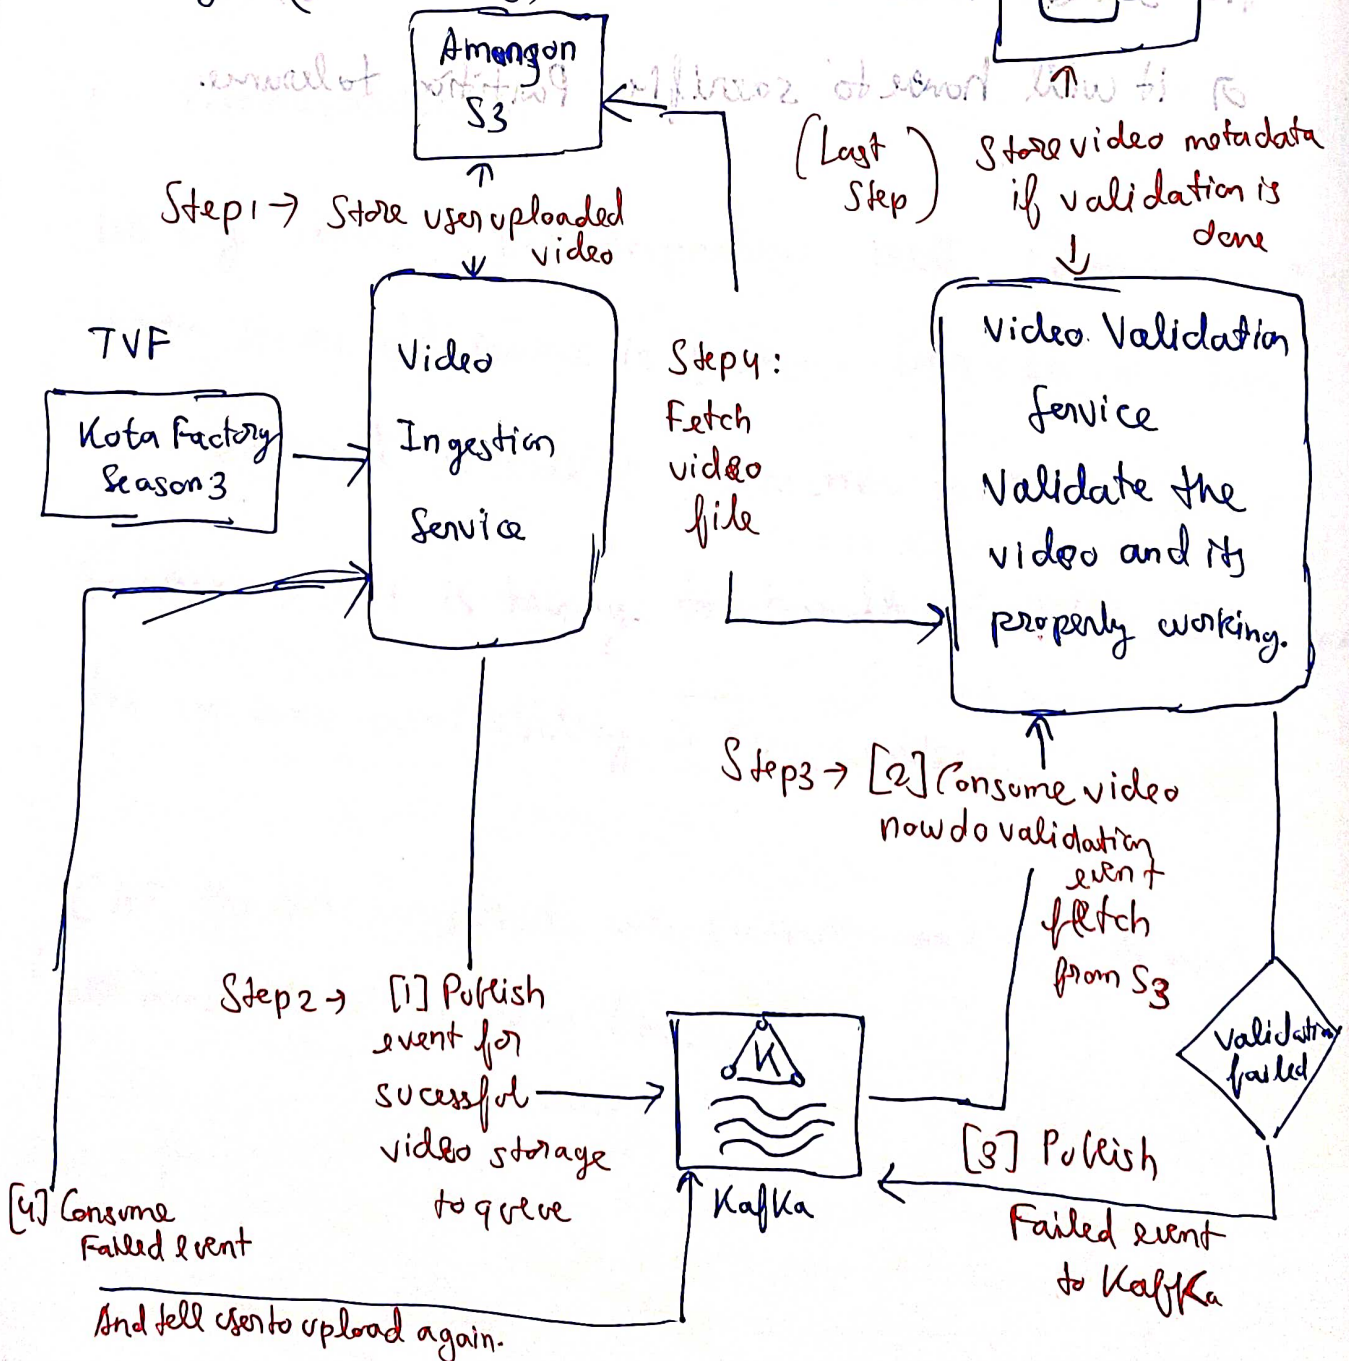 Amangon
S3
(Last
Step)
Store video metadata
if validation is
done
Step1 → Store user uploaded
video
TVF
Kota Factory
Season 3
Video
Ingestion
Service
Step4:
Fetch
video
file
Video Validation
Service
Validate the
video and its
properly working.
Step3 → [2] Consume video
now do validation
event
fetch
from S3
Step2 → [1] Publish
event for
sucessful
video storage
to queue
K
Kafka
Validation
failed
[3] Publish
Failed event
to Kafka
[4] Consume
Failed event
And tell user to upload again.